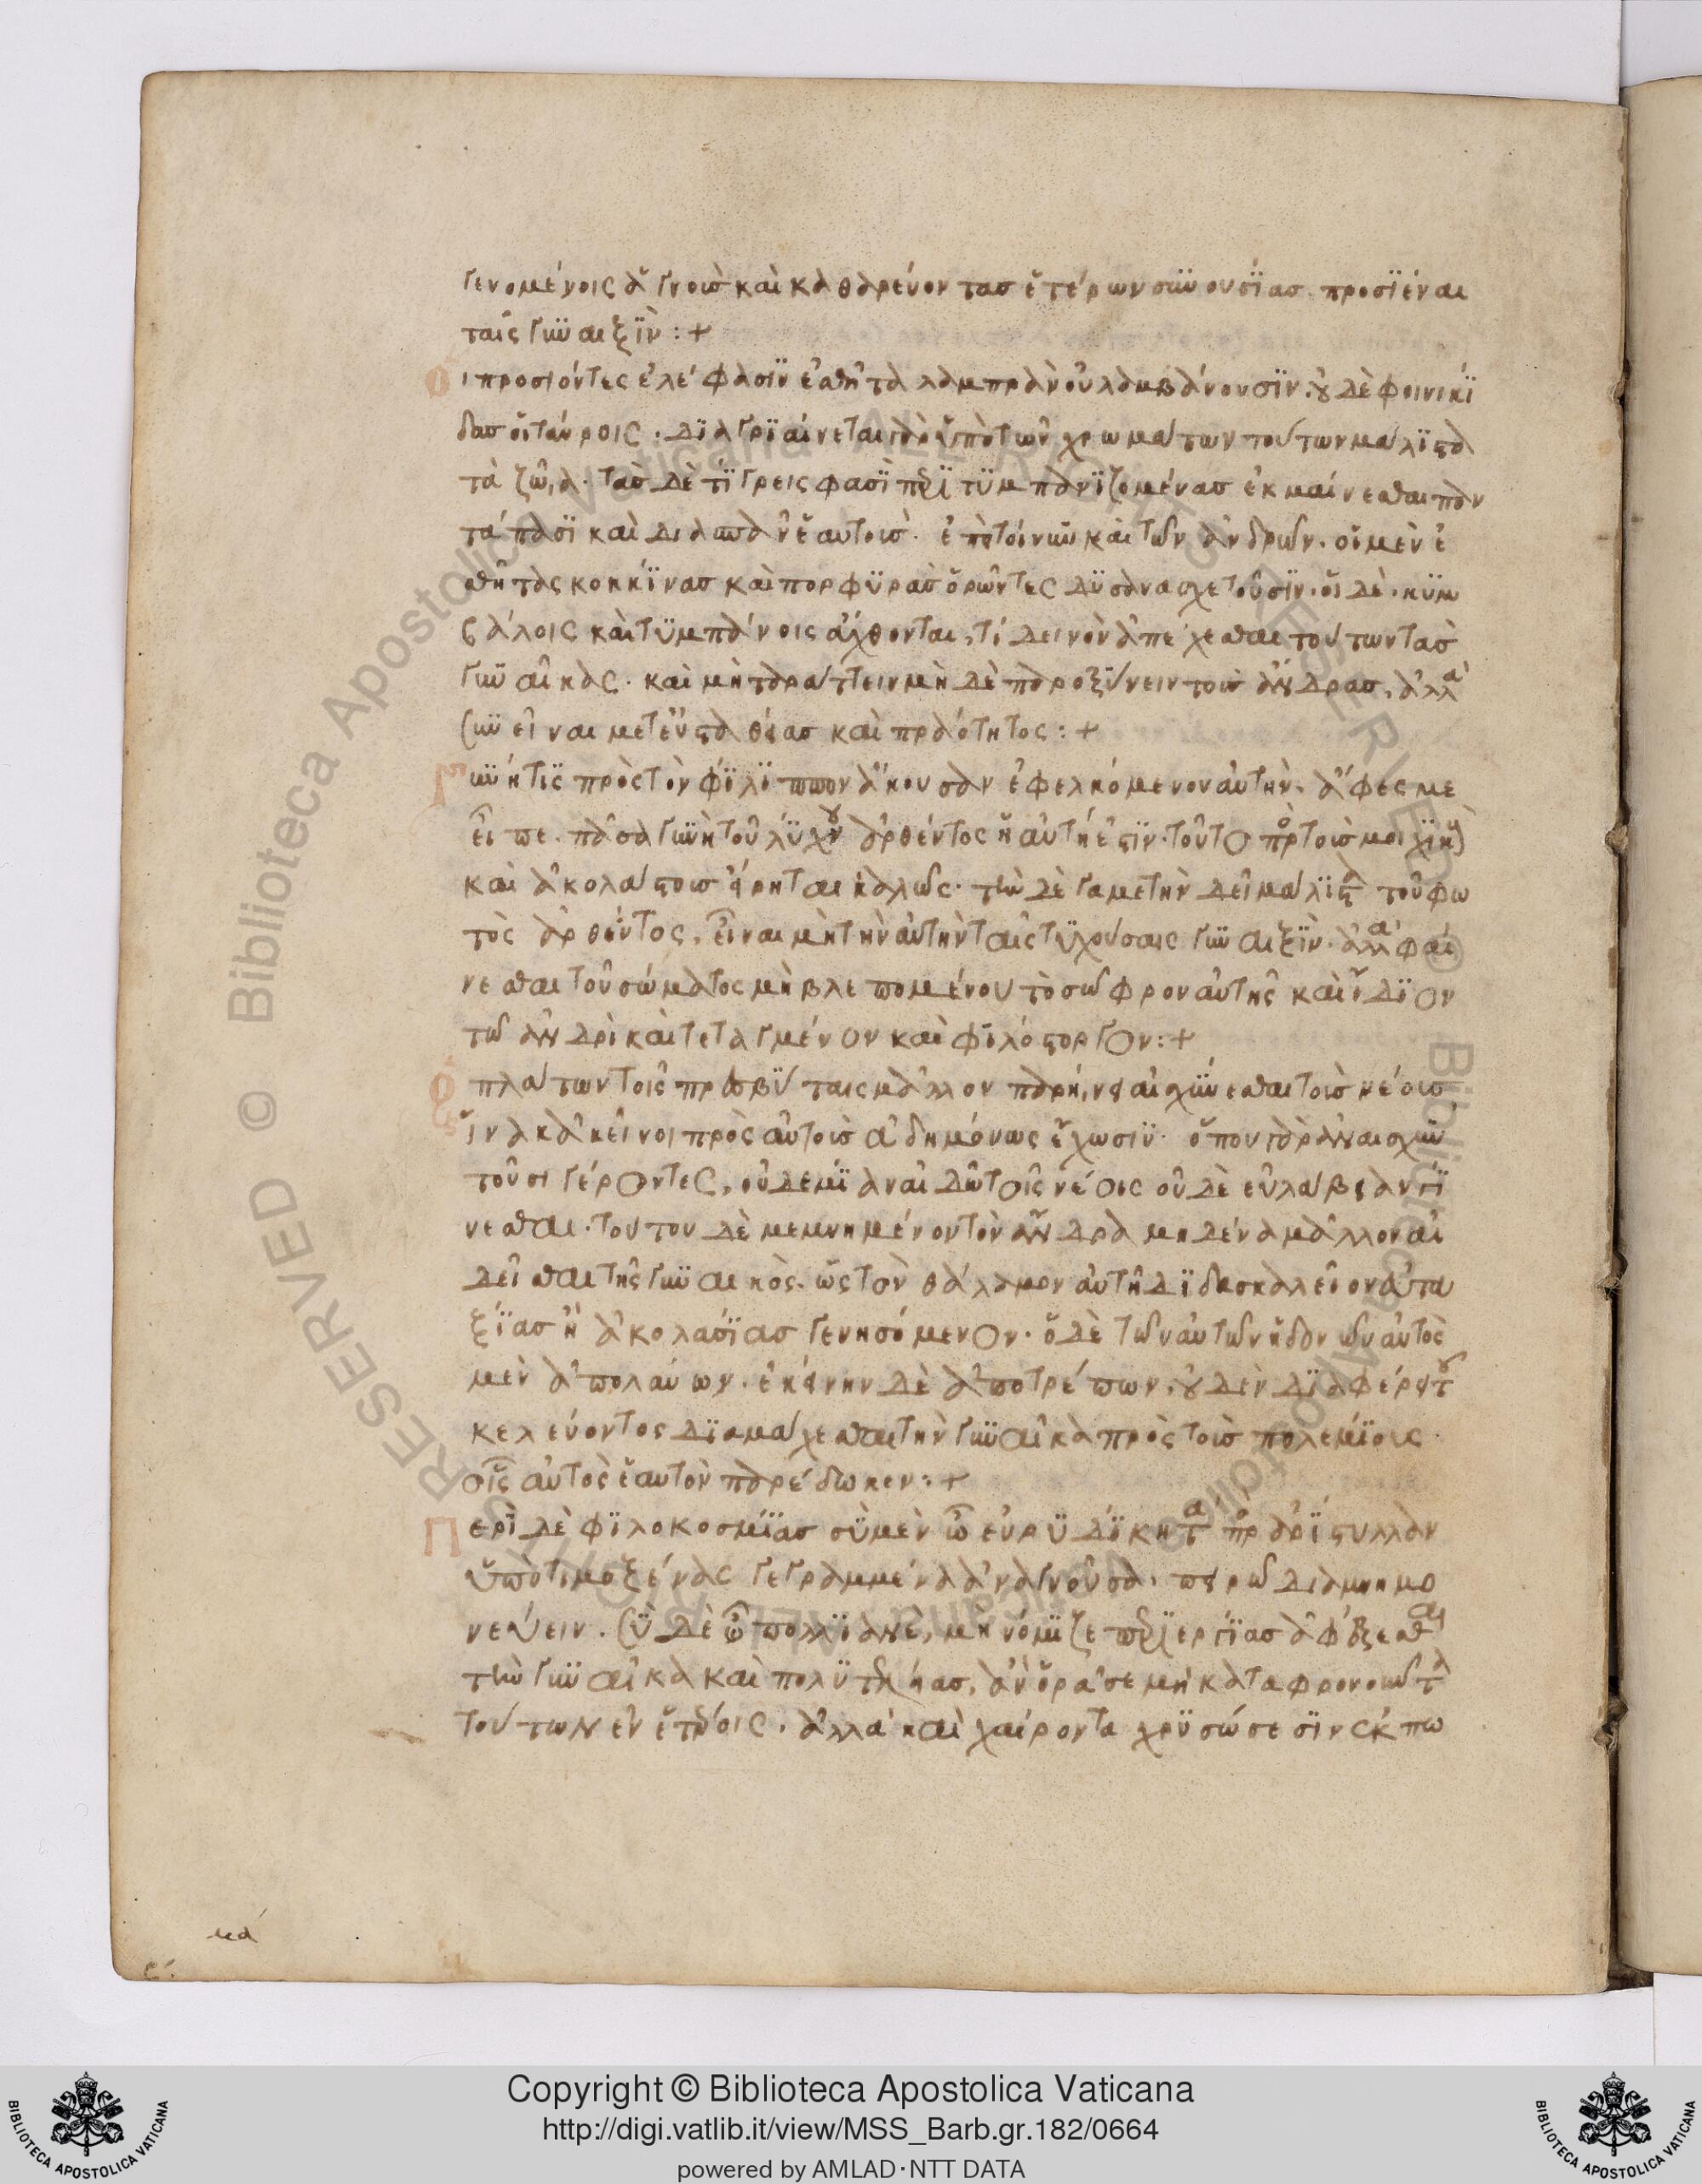 γενομένοις ἁγνοὺς καὶ καθαρεύοντας ἑτέρων συνουσίας προσϊέναι
ταῖς γυναιξὶν :+
Οἱ προσιόντες ἐλέφασιν ἐσθῆτα λαμπρὰν οὐ λαμβάνουσιν. οὐδὲ φοινικί
δας οἱ ταύροις. διαγριαίνεται γὰρ ὑπὸ τῶν χρωμάτων τούτων μάλιστα
τὰ ζῶια. τὰς δὲ τίγρεις φασὶ περιτυμπανιζομένας ἐκμαίνεσθαι παν
τάπασι καὶ διασπᾶν ἑαυτούς. ἐπεὶ τοίνυν καὶ τῶν ἀνδρῶν. οἱ μὲν ἐ
σθῆτας κοκκίνας καὶ πορφυρᾶς ὁρῶντες δυσανασχετοῦσιν. οἱ δὲ κυμ
βάλοις καὶ τυμπάνοις ἄχθονται, τί δεινὸν ἀπέχεσθαι τούτων τὰς
γυναῖκας. καὶ μὴ ταράττειν μηδὲ παροξύνειν τοὺς ἄνδρας, ἀλλὰ
συνεῖναι μετ εὐσταθείας καὶ πραότητος :+
Γυνή τις πρὸς τὸν φίλιππον ἄκουσαν ἐφελκόμενον αὐτὴν. ἄφες με
εἶπε. πᾶσα γυνὴ τοῦ λύχνου ἀρθέντος ἡ αὐτή ἐστιν. τοῦτο πρὸς τοὺς μοιχικοὺς
καὶ ἀκολάστους εἴρηται καλῶς. τὴν δὲ γαμετὴν δεῖ μάλιστα τοῦ φω
τὸς ἀρθέντος, εἶναι μὴ τὴν αὐτὴν ταῖς τυχούσαις γυναιξὶν. ἀλλὰ φαί
νεσθαι τοῦ σώματος μὴ βλεπομένου τὸ σῶφρον αὐτῆς καὶ ἴδιον
τῶ ἀνδρὶ καὶ τεταγμένον καὶ φιλόστοργον :+
Ὁ πλάτων τοῖς πρεσβύταις μᾶλλον παρήινει αἰσχύνεσθαι τοὺς νέους,
ἵνα κἀκεῖνοι πρὸς αὐτοὺς αἰδημόνως ἔχωσιν. ὅπου γὰρ ἀναισχυν
τοῦσι γέροντες, οὐδεμίαν αἰδῶ τοῖς νέοις οὐδὲ εὐλάβειαν γί
νεσθαι. τούτου δὲ μεμνημένον τὸν ἄνδρα μηδένα μᾶλλον αἰ
δεῖσθαι τῆς γυναικὸς. ὡς τὸν θάλαμον αὐτῆ διδασκαλεῖον εὐτα
ξίας ἢ ἀκολασίας γενησόμενον. ὁ δὲ τῶν αὐτῶν ἡδονῶν αὐτὸς
μὲν ἀπολαύων. ἐκείνην δὲ ἀποτρέπων. οὐδὲν διαφέρει τοῦ
κελεύοντος διαμάχεσθαι τὴν γυναῖκα πρὸς τοὺς πολεμίους.
οἷς αὐτὸς ἑαυτὸν παρέδωκεν :+
Περὶ δὲ φιλοκοσμίας σὺ μὲν ὦ εὐρυδίκη τὰ πρὸς ἀρίστυλλαν
ὑπὸ τιμοξένας γεγραμμένα ἀναγνοῦσα. πειρῶ διαμνημο
νεύειν. σὺ δὲ ὦ πολλιανὲ, μὴ νόμιζε περιεργίας ἀφέξεσθαι
τὴν γυναῖκα καὶ πολυτελείας, ἂν ὁρᾷ σε μὴ καταφρονοῦντα
τούτων ἐν ἑτέροις. ἀλλὰ καὶ χαίροντα χρυσώσεσιν ἐκπω